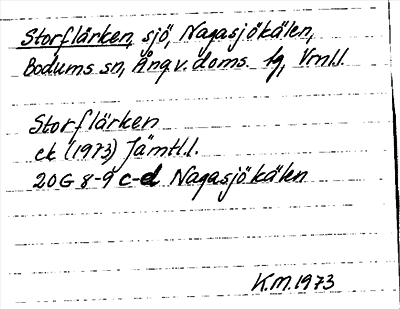 Storflärken, sjö, Nagasjökälen,
Bodums sn, Ångv. doms. tg, Vrnl.l.
Storflärken
ek (1973) Jämtl.l.
20G 8-9 c-d Nagasjökälen
K.M. 1973